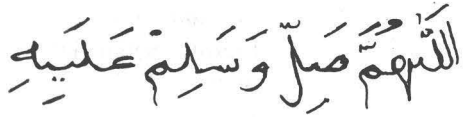 اَللّٰهُمَّ صَلِّ وَسَلِمْ عَلَيهِ